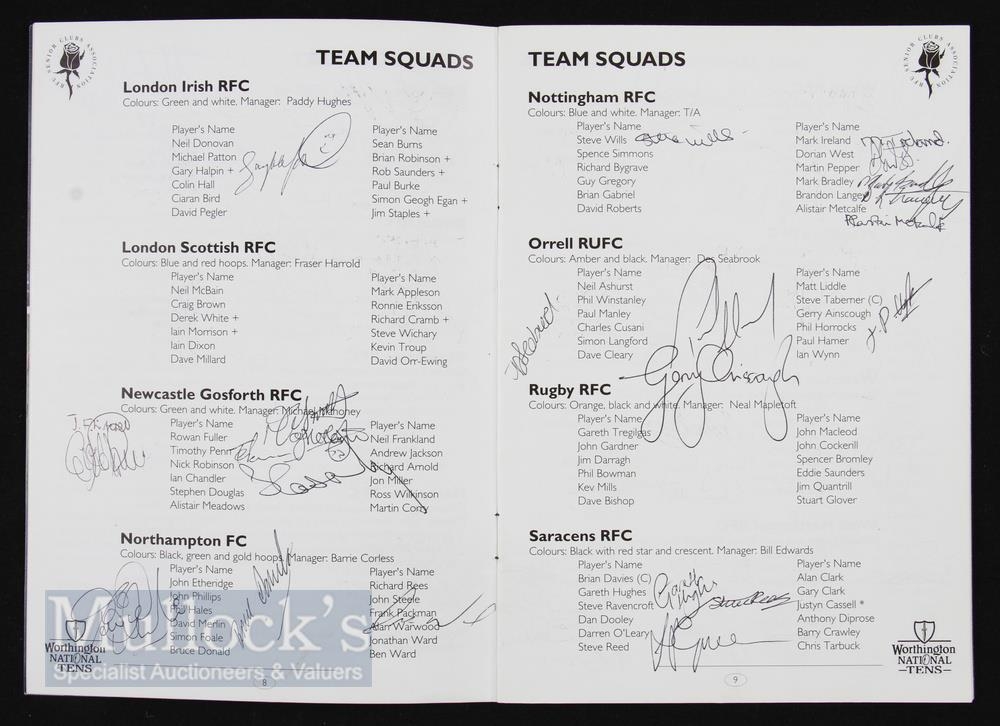 RFC SENIOR CLUBS ASSOCIATION
TEAM SQUADS
London Irish RFC
Colours: Green and white. Manager: Paddy Hughes
Player's Name
Neil Donovan
Michael Patton
Gary Halpin +
Colin Hall
Ciaran Bird
David Pegler
Player's Name
Sean Burns
Brian Robinson +
Rob Saunders +
Paul Burke
Simon Geogh Egan +
Jim Staples +
London Scottish RFC
Colours: Blue and red hoops. Manager: Fraser Harrold
Player's Name
Neil McBain
Craig Brown
Derek White +
Iain Morrison +
Iain Dixon
Dave Millard
Player's Name
Mark Appleson
Ronnie Eriksson
Richard Cramb +
Steve Wichary
Kevin Troup
David Orr-Ewing
Newcastle Gosforth RFC
Colours: Green and white. Manager: Michael Mahoney
Player's Name
Rowan Fuller
Timothy Penn
Nick Robinson
Ian Chandler
Stephen Douglas
Alistair Meadows
Player's Name
Neil Frankland
Andrew Jackson
Richard Arnold
Jon Miller
Ross Wilkinson
Martin Corry
Northampton FC
Colours: Black, green and gold hoops. Manager: Barrie Corless
Player's Name
John Etheridge
John Phillips
Phil Hales
David Merlin
Simon Foale
Bruce Donald
Player's Name
Richard Rees
John Steele
Frank Packman
Alan Warwood
Jonathan Ward
Ben Ward
Mullock's
Specialist Auctioneers & Valuers
Worthington
NATIONAL
TENS
8
RFC SENIOR CLUBS ASSOCIATION
TEAM SQUADS
Nottingham RFC
Colours: Blue and white. Manager: T/A
Player's Name
Steve Wills
Spence Simmons
Richard Bygrave
Guy Gregory
Brian Gabriel
David Roberts
Steve Wills
Player's Name
Mark Ireland
Dorian West
Martin Pepper
Mark Bradley
Brandon Langley
Alistair Metcalfe
Mark Bradley
Alastair Metcalfe
Orrell RUFC
Colours: Amber and black. Manager: Des Seabrook
Player's Name
Neil Ashurst
Phil Winstanley
Paul Manley
Charles Cusani
Simon Langford
Dave Cleary
Player's Name
Matt Liddle
Steve Taberner (C)
Gerry Ainscough
Phil Horrocks
Paul Hamer
Ian Wynn
Gerry Ainscough
Rugby RFC
Colours: Orange, black and white. Manager: Neal Mapletoft
Player's Name
Gareth Tregilgas
John Gardner
Jim Darragh
Phil Bowman
Kev Mills
Dave Bishop
Player's Name
John Macleod
John Cockerill
Spencer Bromley
Eddie Saunders
Jim Quantrill
Stuart Glover
Saracens RFC
Colours: Black with red star and crescent. Manager: Bill Edwards
Player's Name
Brian Davies (C)
Gareth Hughes
Steve Ravencroft
Dan Dooley
Darren O'Leary
Steve Reed
Player's Name
Alan Clark
Gary Clark
Justyn Cassell *
Anthony Diprose
Barry Crawley
Chris Tarbuck
Worthington
NATIONAL
TENS
9